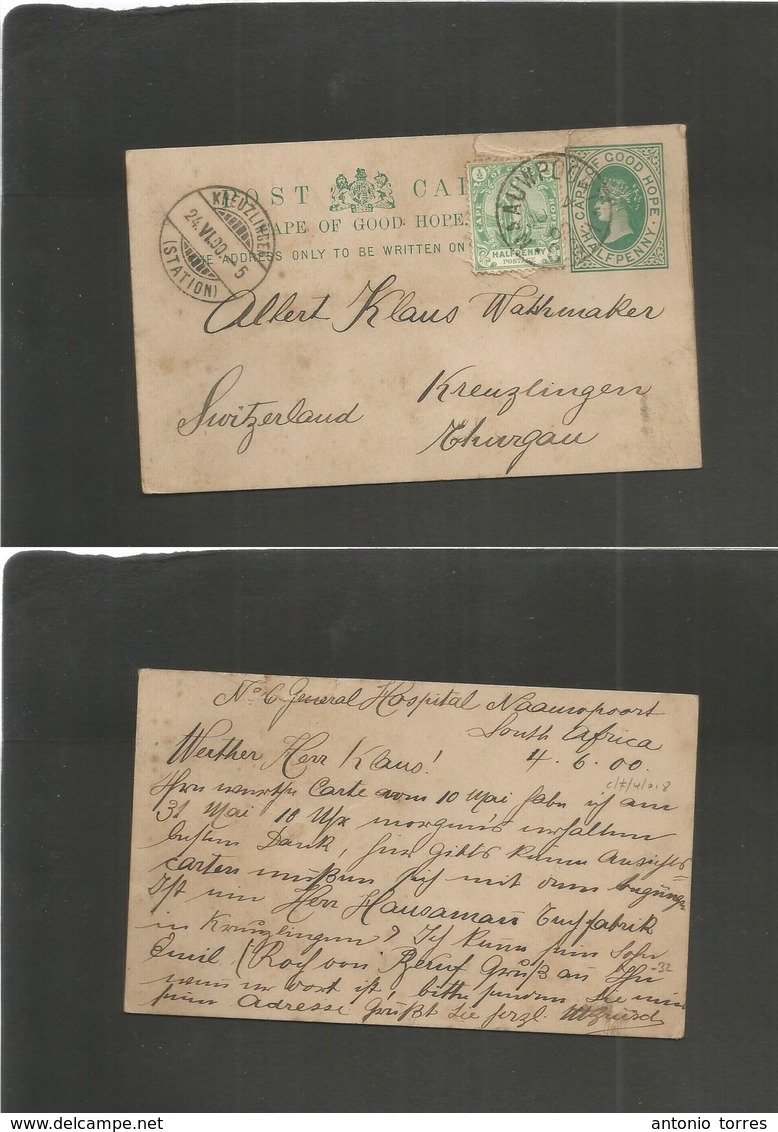 POST CAR
CAPE OF GOOD HOPE.
E ADDRESS ONLY TO BE WRITTEN ON
KREUZLINGEN
24.VI.00. 5
(STATION)
HALFPENNY
POSTAGE
NAAUWPO
CAPE OF GOOD HOPE
HALFPENNY
Albert Klaus Watchmaker
Kreuzlingen
Switzerland
Thurgau
No 6 General Hospital Naauwpoort
South Africa
4. 6. 00.
Werther Herr Klaus!
Ihre werthe Carte vom 10 Mai habe ich am
31 Mai 10 Uhr morgens erhalten
besten Dank, hier gibts keine Ansichts
carten müßen sich mit dem begnügen
Ist ein Herr Hausaman Tuchfabrik
in Kreuzlingen? Ich kenne sein Sohn
Emil (Koch von Beruf Gruß an Ihn
-32
wenn er dort ist, bitte senden Sie mir
sein Adresse Grüßt Sie herzl.
antonio torres